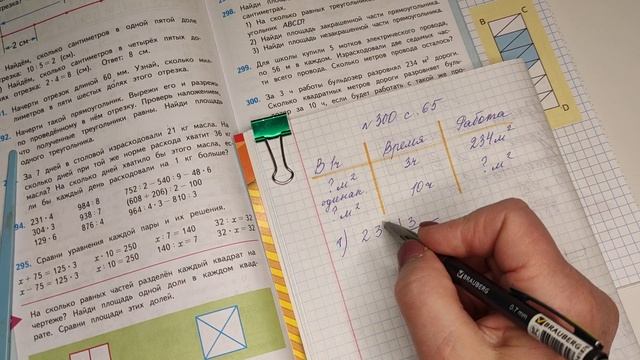 2 см
Найдём, сколько сантиметров в одной пятой доле
отрезка: 10 : 5 = 2 (см).
Найдём, сколько сантиметров в четырёх пятых до-
лях отрезка: 2 · 4 = 8 (см). Ответ: 8 см.
Начерти отрезок длиной 60 мм. Узнай, сколько мил-
лиметров в пяти шестых долях этого отрезка.
292. Начерти такой прямоугольник. Вырежи его и разрежь
по проведённому в нём отрезку. Проверь наложением,
что полученные треугольники равны. Найди площадь
одного треугольника.
За 7 дней в столовой израсходовали 21 кг масла. На
сколько дней при той же норме расхода хватит 36 кг
масла? На сколько дней хватило бы этого масла, ес-
ли бы каждый день расходовали на 1 кг больше?
294.
231 · 4 984 : 8 752 : 2 − 540 : 9 − 48 · 6
304 · 3 938 : 7 (608 + 206) : 2 − 100
129 · 6 876 : 4 964 : 4 · 3 − 810 : 3
295. Сравни уравнения каждой пары и их решения.
x + 75 = 125 · 3 x · 10 = 250 x : 7 = 140 32 : x = 32
x − 75 = 125 · 3 x : 10 = 250 140 : x = 7 32 · x = 32
На сколько равных частей разделён каждый квадрат на
чертеже? Найди площадь одной доли в каждом квад-
рате. Сравни площади этих долей.
298. Найди
сантиметрах.
1) На сколько равных треугольников
угольник ABCD?
2) Найди площадь закрашенной части прямоугольника.
3) Найди площадь незакрашенной части прямоугольника.
299. Для школы купили 5 мотков электрического провода,
по 56 м в каждом. Израсходовали две седьмых час-
ти всего провода. Сколько метров провода осталось?
300. За 3 ч работы бульдозер разровнял 234 м² дороги.
Сколько квадратных метров дороги разровняет буль-
дозер за 10 ч, если будет работать с такой же про-
B C
D
№300 с. 65
В 1ч Время Работа
? м² 3ч 234 м²
одинак.
? м² 10ч ? м²
1) 23
BRAUBERG
0.7 mm
BRAUBERG